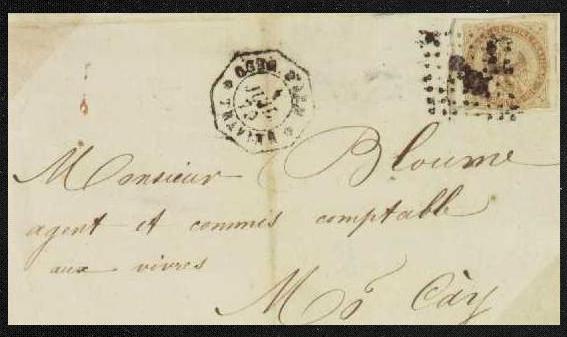 Monsieur Bloume
agent et commis comptable
aux vivres
Mõ Cày